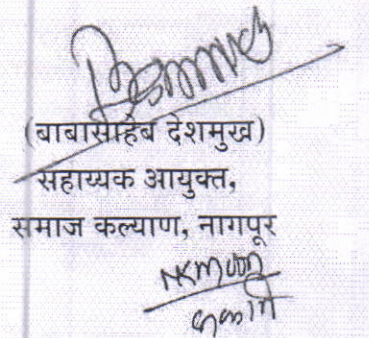 (बाबासाहेब देशमुख)
सहाय्यक आयुक्त,
समाज कल्याण, नागपूर